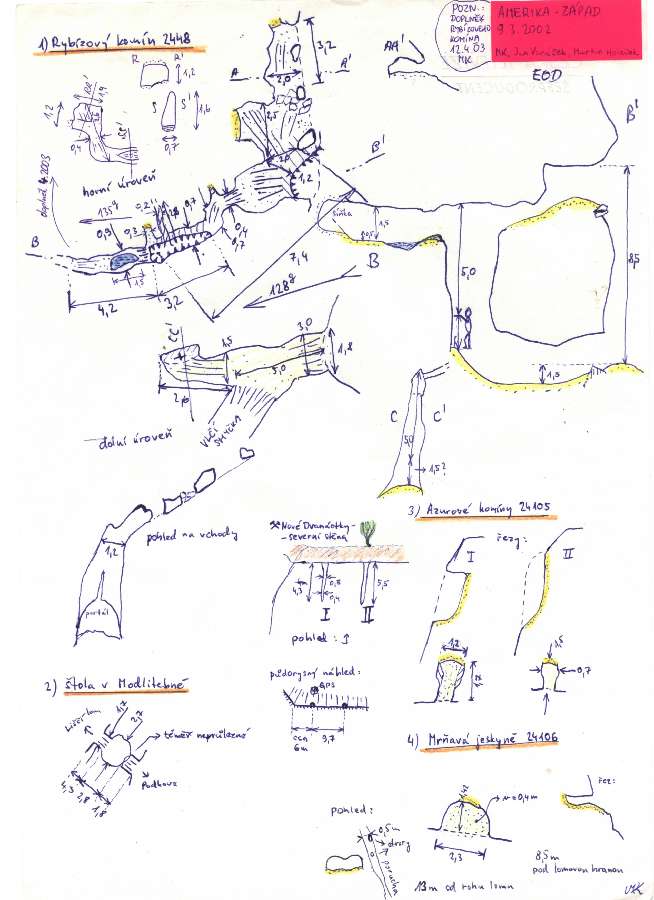 1) Rybízový komín 2448
POZN.:
DOPLNĚK
RYBÍZOVÉHO
KOMÍNA
12.4.03
MK
AMERIKA - ZÁPAD
9.3.2002
EOD
R R'
1,2
S S'
1,6
0,7
1,2
0,4
A
A'
3,2
2,0
2,5
1,2
AA'
B'
B'
horní úroveň
135g
0,9
0,3
0,7
0,4
0,7
1,5
B
4,2
3,2
7,4
128g
síňka
1,5
0,5
B
5,0
8,5
1,5
CC'
1,5
3,0
1,8
5,0
VLČÍ
SMYČKA
dolní úroveň
C
C'
5,0
1,5?
pohled na vchody
1,2
portál
⚒ Nové Dvanáctky -
- severní stěna
4,3
0,3
0,4
5,5
I
II
pohled: ↑
půdorysný náhled:
GPS
cca
6m
3,7
3) Azurové komíny 24105
řezy:
I
II
1,2
0,7
2) Štola v Modlitebně
1,2
2,2
téměř neprůlezné
Podkova
4,3
2,8
1,8
4) Mrňavá jeskyně 24106
v=0,4m
2,3
řez:
8,5m
pod lomovou hranou
pohled:
0,5m
porucha
13m od rohu lomu
MK